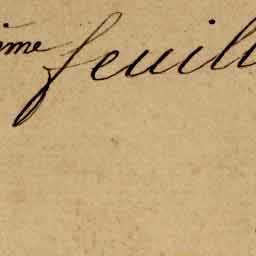 ème feuill